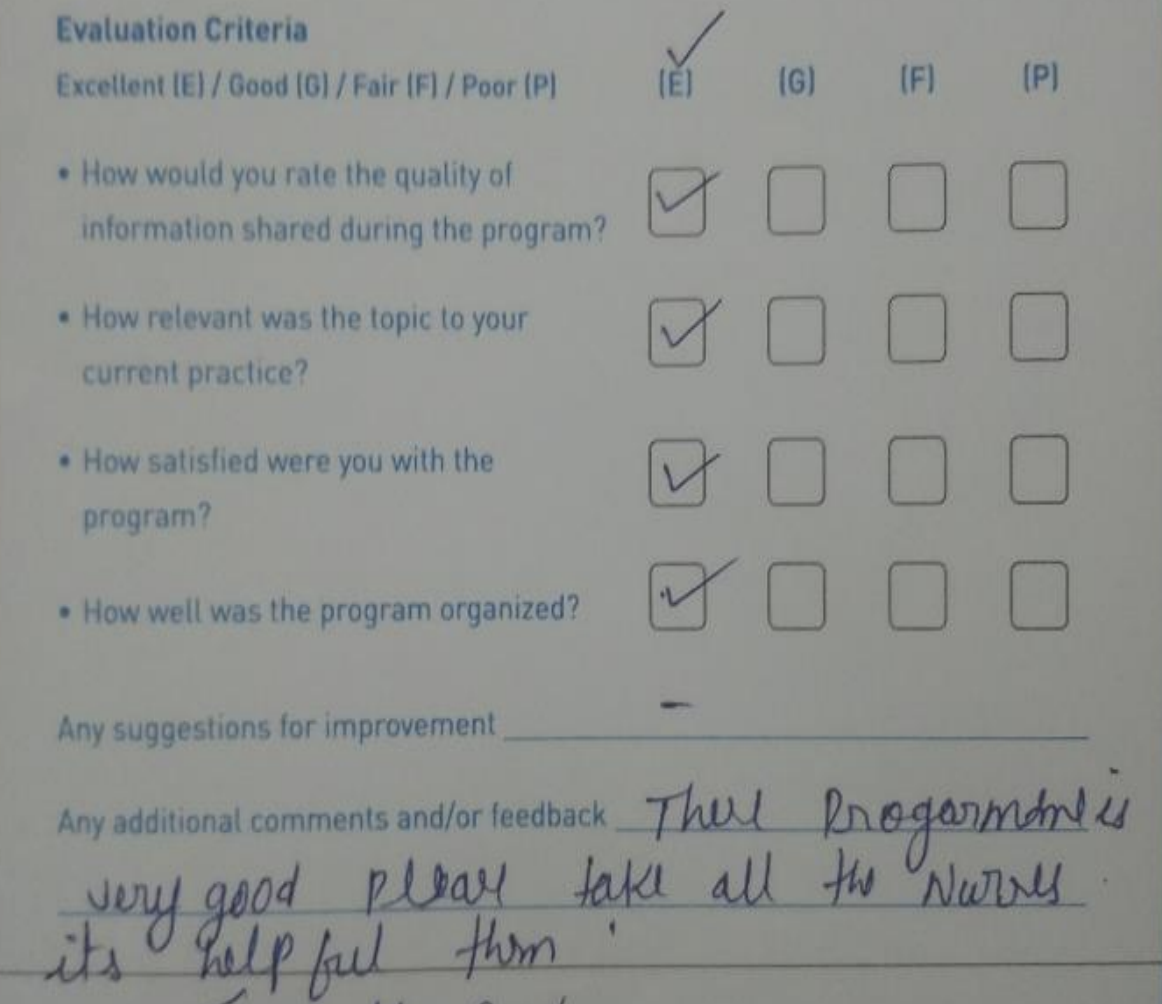 Evaluation Criteria
Excellent (E) / Good (G) / Fair (F) / Poor (P) (E) (G) (F) (P)
• How would you rate the quality of
information shared during the program?
• How relevant was the topic to your
current practice?
• How satisfied were you with the
program?
• How well was the program organized?
Any suggestions for improvement –
Any additional comments and/or feedback is
very good please take all the Nurses
its helpful them